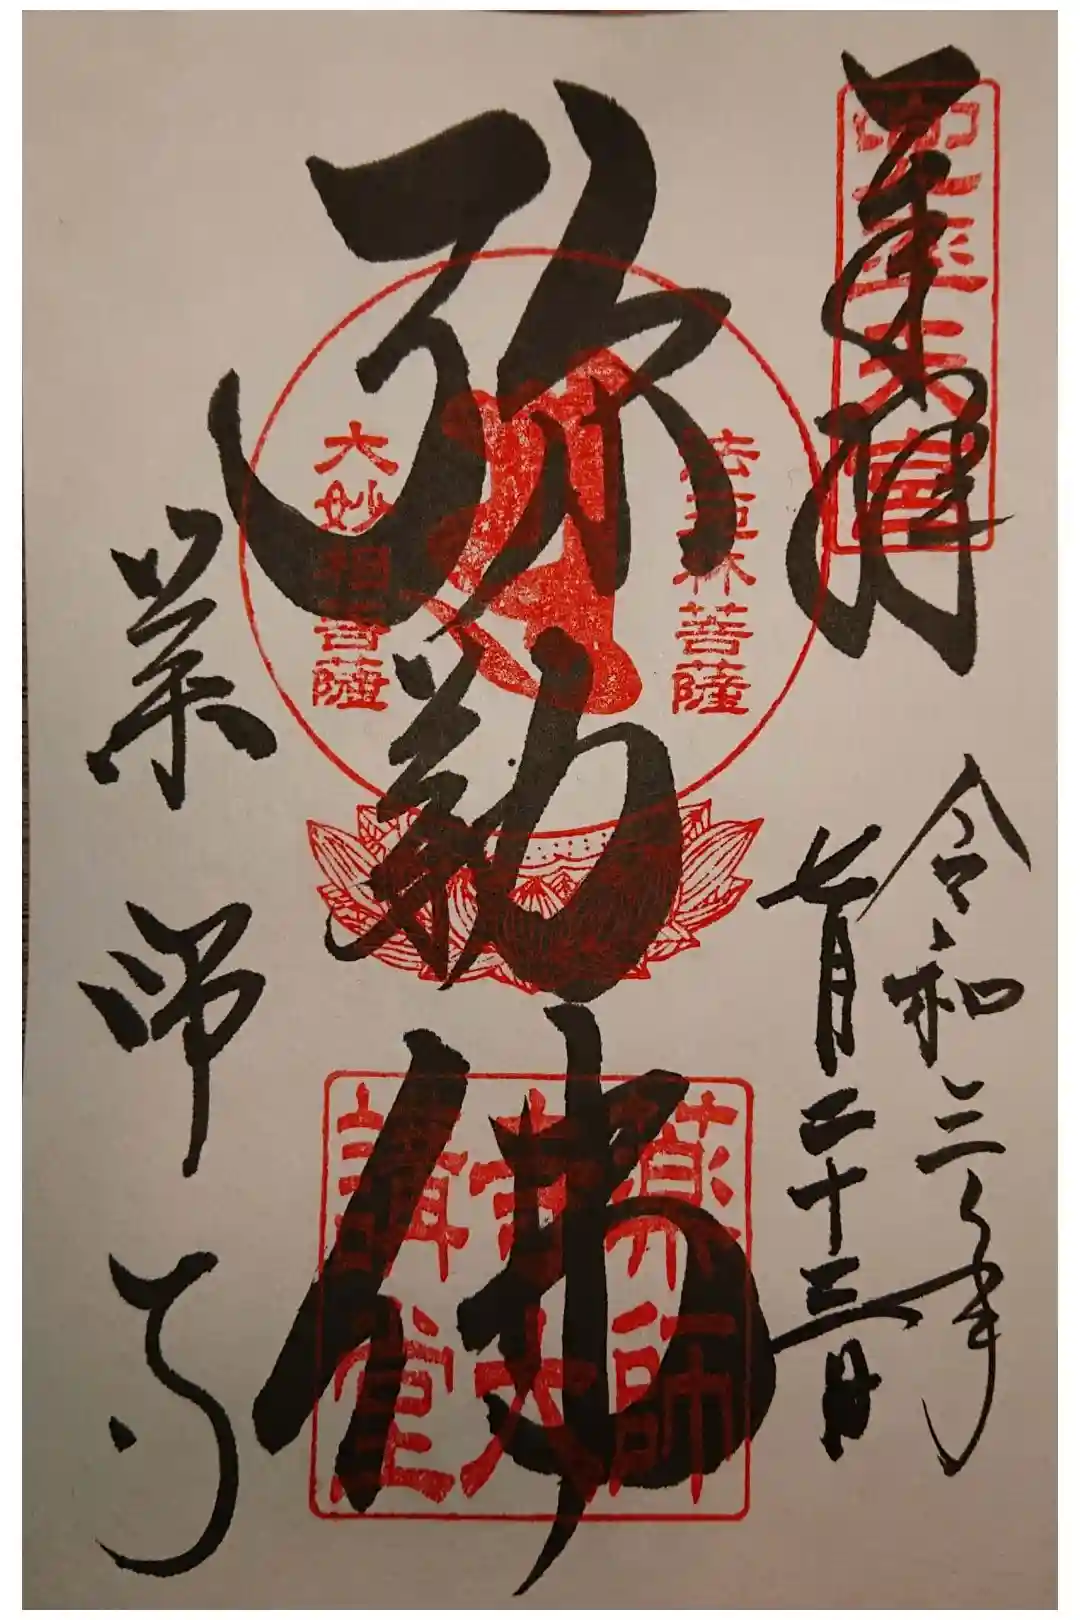 奉拝
兜率天宮
令和三年
七月二十三日
弥勒佛
法苑林菩薩
大妙相菩薩
薬師
寺大
講堂
薬師寺